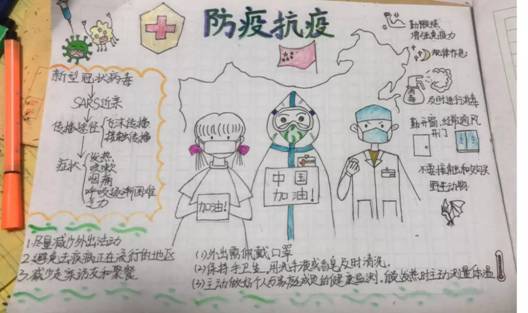 防疫抗疫
新型冠状病毒
SARS近亲
传播途径
飞沫传播
接触传播
症状
发热
咳嗽
咽痛
呼吸困难
乏力
加油!
中国
加油!
勤锻炼
增强免疫力
规律作息
及时进行消毒
勤开窗,经常通风
开门
不要接触和
野生动物
1.尽量减少外出活动
2.避免去疾病正在流行的地区
3.减少走亲访友和聚餐
(1)外出需佩戴口罩
(2)保持手卫生,用洗手液或香皂及时清洗.
(3)主动做好个人与家庭成员的健康监测,发热时主动测量体温